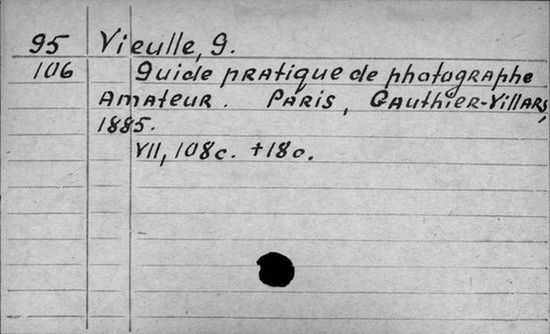 95 Vieulle, G.
106 Guide pratique de photographe
amateur. Paris, Gauthier-Villars,
1885.
VII, 108c. +18o.